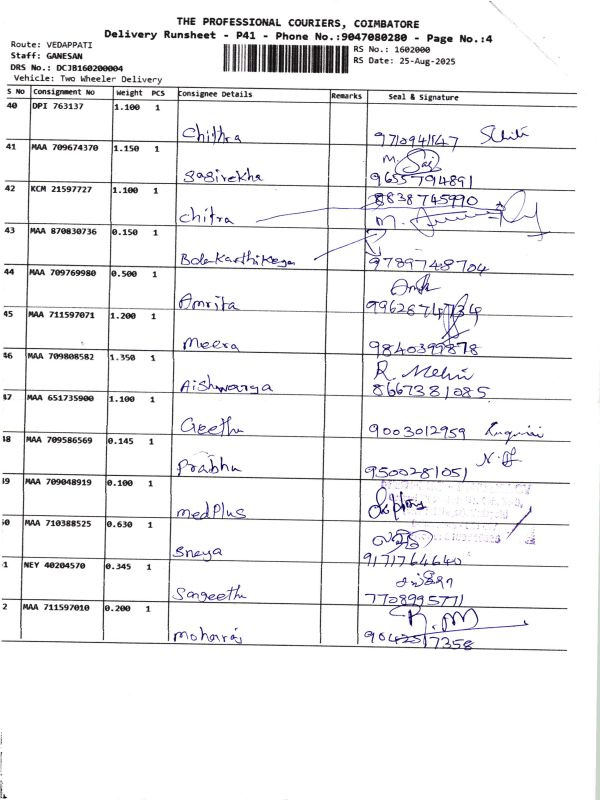 THE PROFESSIONAL COURIERS, COIMBATORE
Delivery Runsheet - P41 - Phone No.:9047080280 - Page No.:4
Route: VEDAPPATI
Staff: GANESAN
DRS No.: DCJB160200004
Vehicle: Two Wheeler Delivery
RS No.: 1602000
RS Date: 25-Aug-2025
S No Consignment No Weight PCS Consignee Details Remarks Seal & Signature
40 DPI 763137 1.100 1
Chithra 9710941547
41 MAA 709674370 1.150 1
Sasirekha 9655794891
42 KCM 21597727 1.100 1 8838745990
Chitra
43 MAA 870830736 0.150 1
Balakarthikeyan 9789748704
44 MAA 709769980 0.500 1
Amrita
45 MAA 711597071 1.200 1
Meera 9840399878
46 MAA 709808582 1.350 1
Aishwarya 8667381085
47 MAA 651735900 1.100 1
Geetha 9003012959
48 MAA 709586569 0.145 1
Prabhu 9500281051
49 MAA 709048919 0.100 1
MedPlus
50 MAA 710388525 0.630 1
Sneya 9171764640
1 NEY 40204570 0.345 1
Sangeetha 7708995771
2 MAA 711597010 0.200 1
Moharaj 9042517358